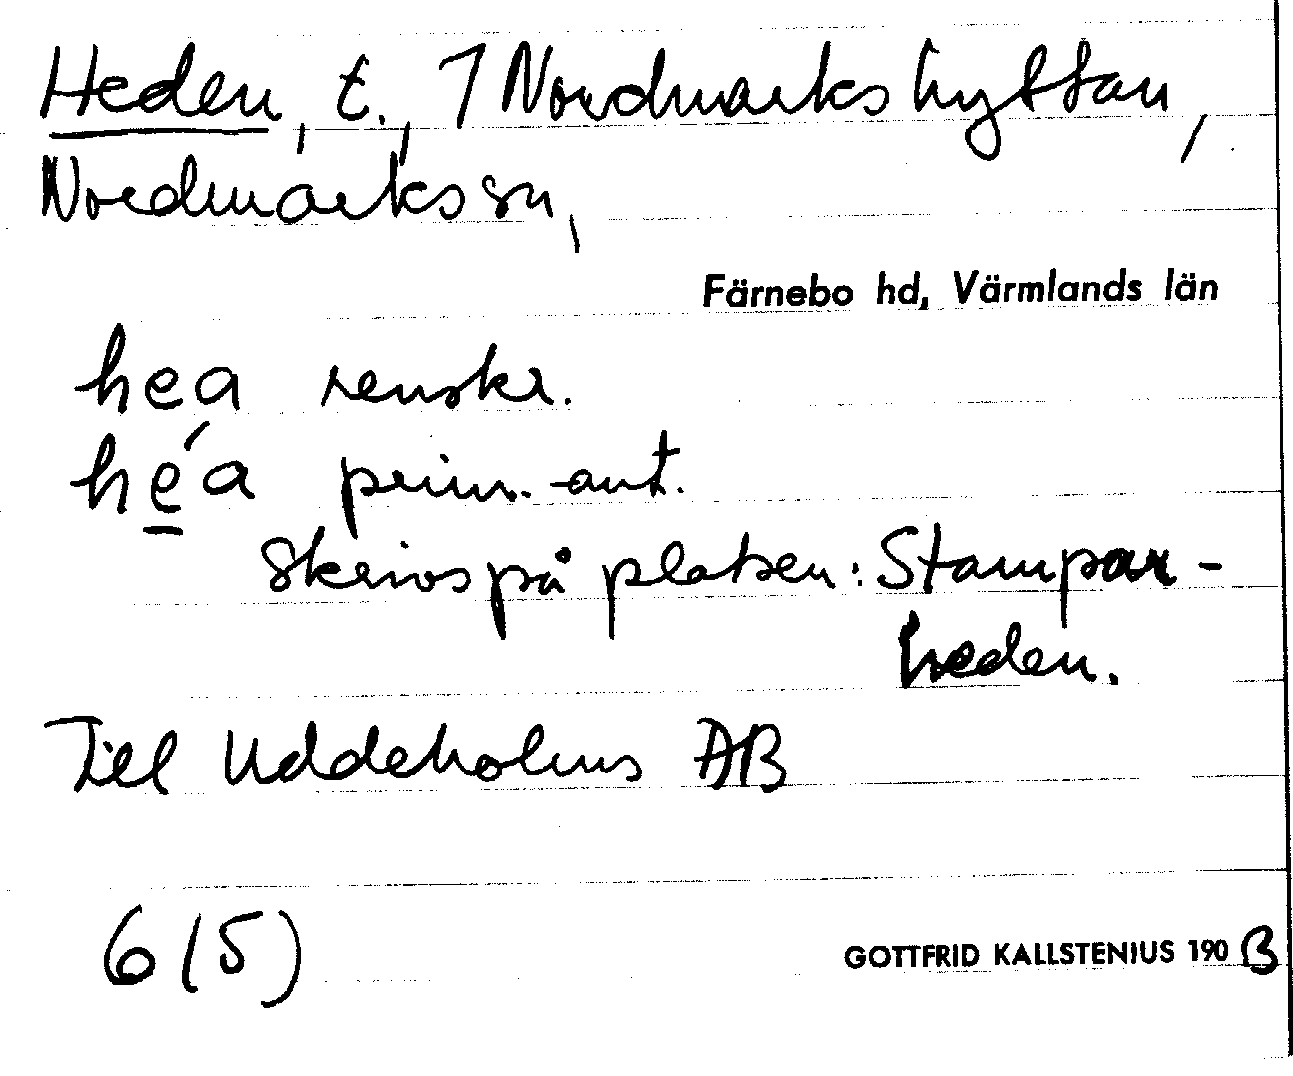 Heden, t., 1 Nordmarkshyttan,
Nordmarks sn,
Färnebo hd, Värmlands län
hea renskr.
he̲´a prim. ant.
Skrivs på platsen: Stampar-
heden.
Till Uddeholms AB
6 (5)
GOTTFRID KALLSTENIUS 190 3